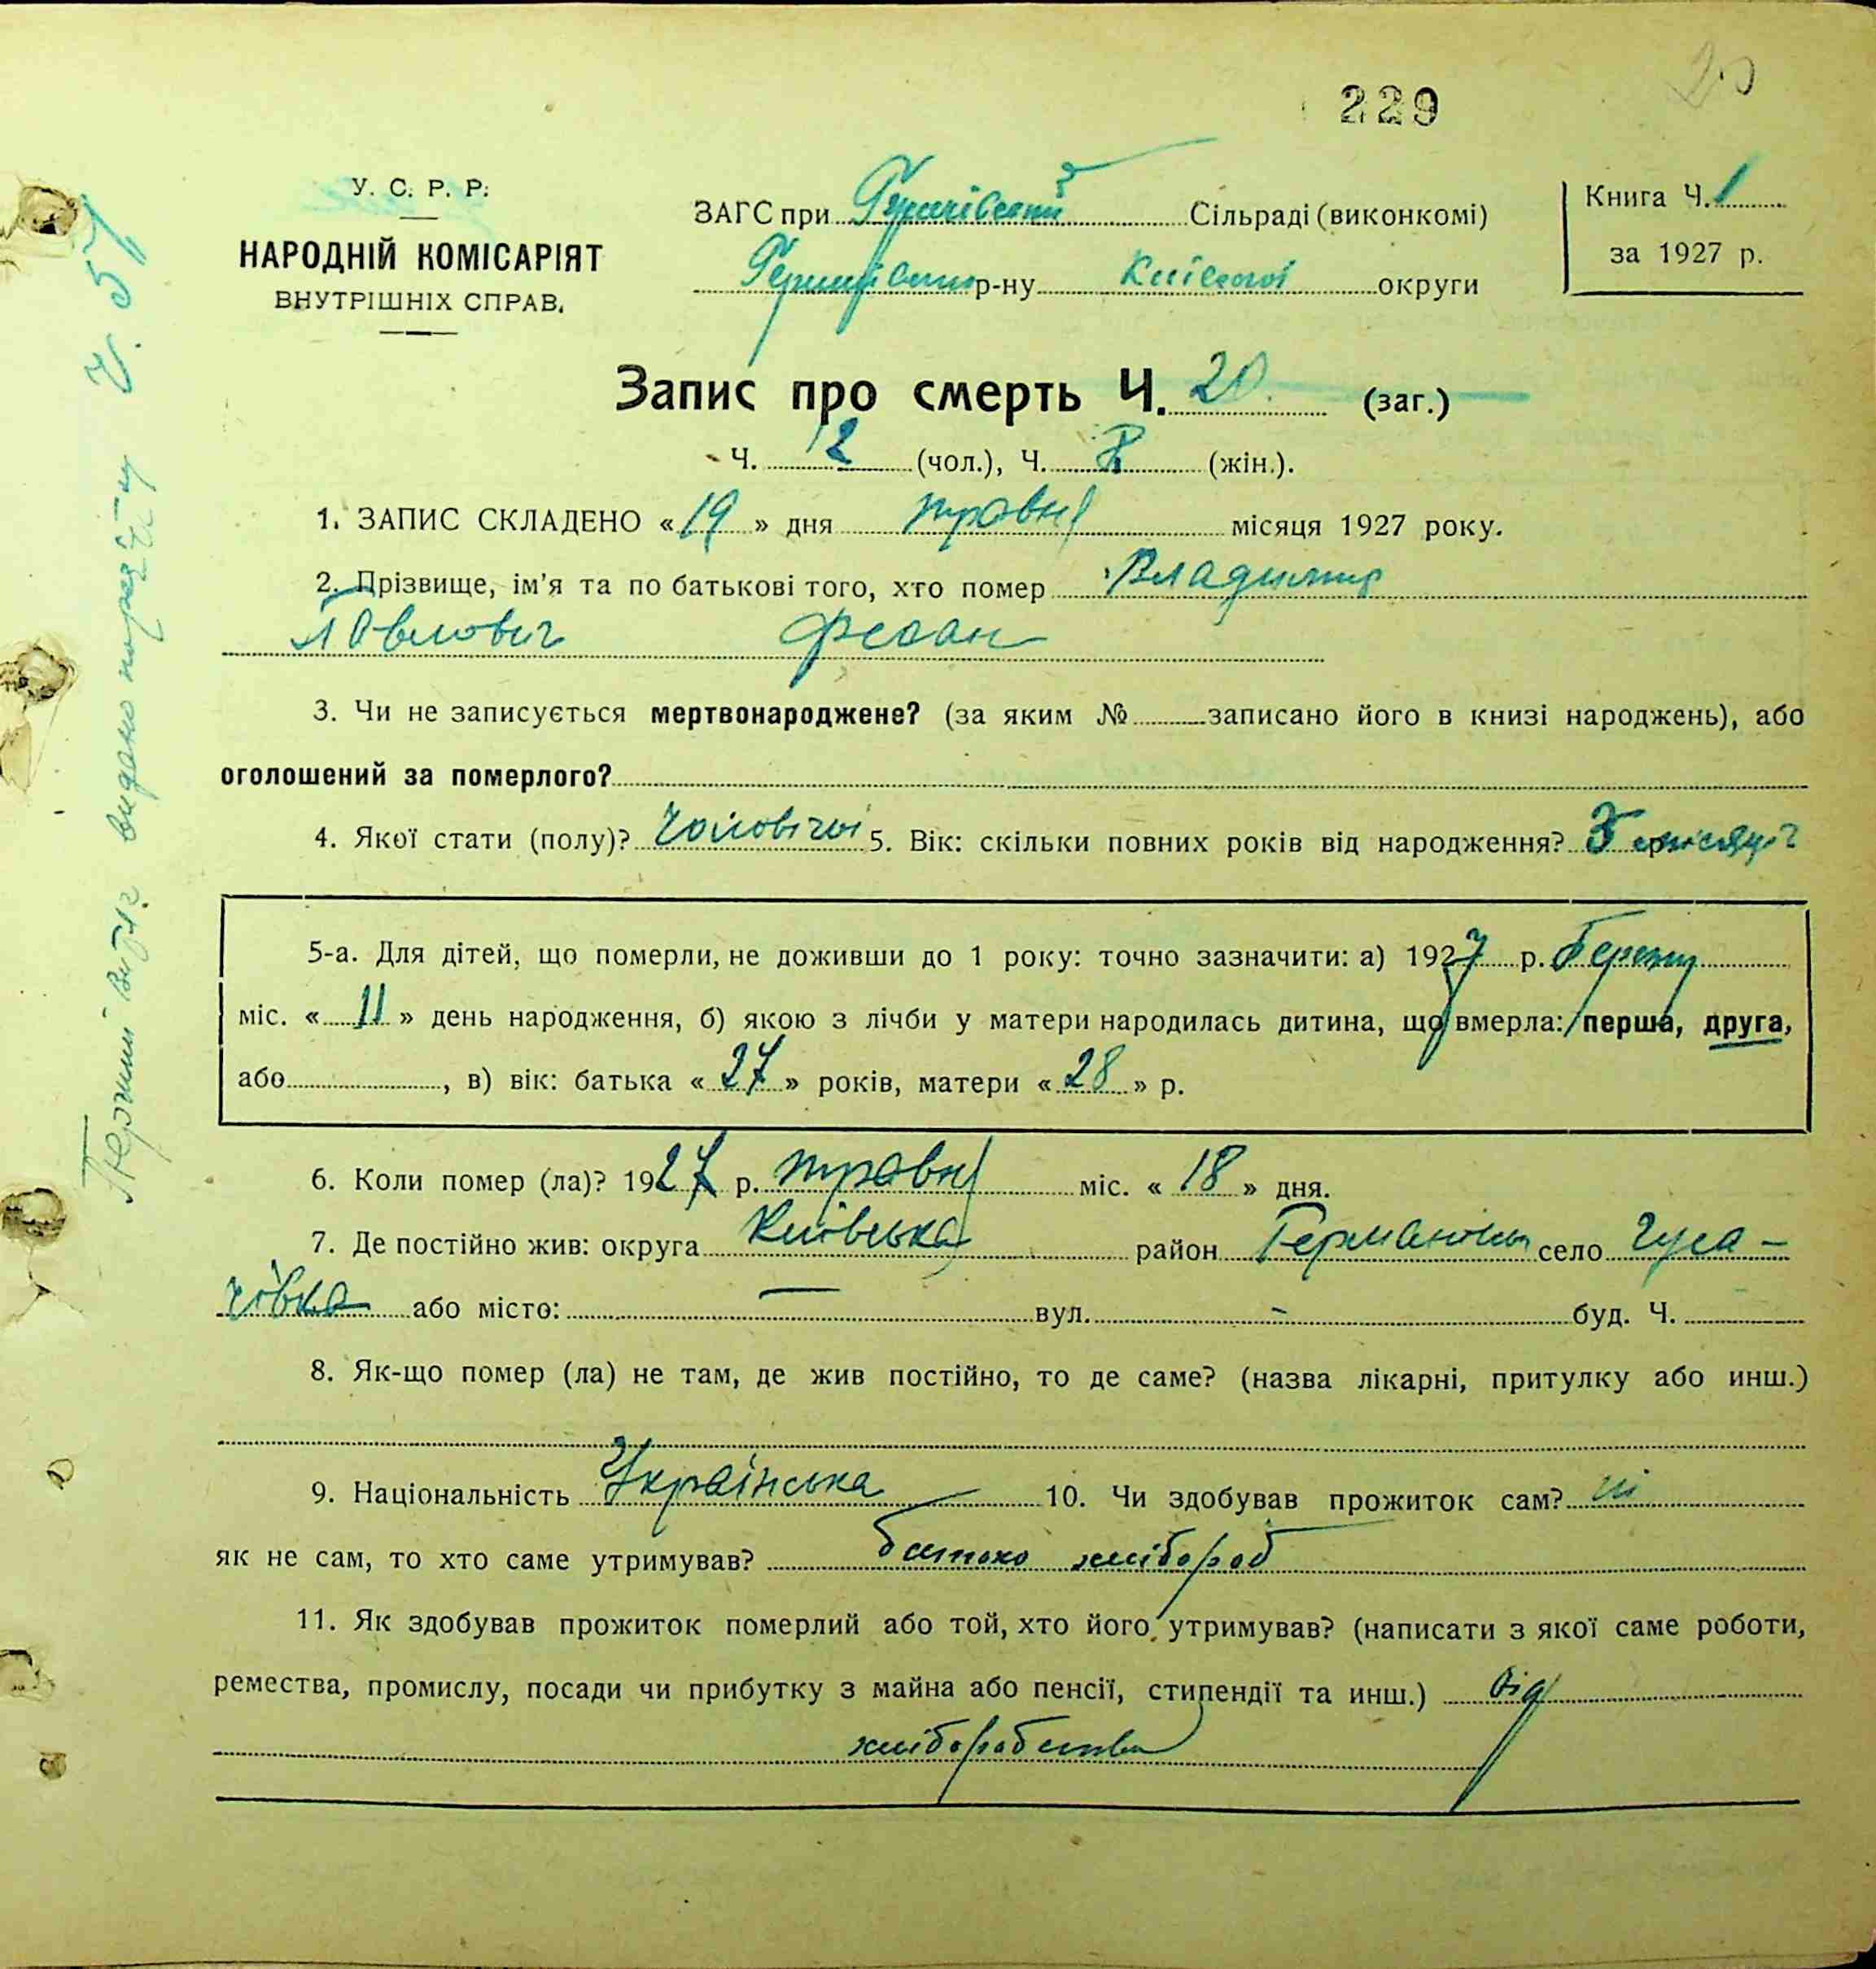 20
229
У. С. Р. Р.
НАРОДНІЙ КОМІСАРІЯТ
ВНУТРІШНІХ СПРАВ.
ЗАГС при Сільраді (виконкомі)
р-ну Київської округи
Книга Ч. 1
за 1927 р.
Запис про смерть Ч. 20. (заг.)
Ч. 12 (чол.), Ч. 8 (жін.).
1. ЗАПИС СКЛАДЕНО «19» дня травня місяця 1927 року.
2. Прізвище, ім'я та по батькові того, хто помер Владимир
Павлович Фесан
3. Чи не записується мертвонароджене? (за яким № записано його в книзі народжень), або
оголошений за померлого?
4. Якої стати (полу)? чоловічої 5. Вік: скільки повних років від народження? місяці
5-а. Для дітей, що померли, не доживши до 1 року: точно зазначити: а) 1927 р. Березня
міс. «11» день народження, б) якою з лічби у матери народилась дитина, що вмерла: перша, друга,
або , в) вік: батька «27» років, матери «28» р.
6. Коли помер (ла)? 1927 р. травня міс. «18» дня.
7. Де постійно жив: округа Київська район Германівськ село Гуса-
чівка або місто: — вул. - буд. Ч.
8. Як-що помер (ла) не там, де жив постійно, то де саме? (назва лікарні, притулку або инш.)
9. Національність Українська 10. Чи здобував прожиток сам? ні
як не сам, то хто саме утримував? батько хлібороб
11. Як здобував прожиток померлий або той, хто його утримував? (написати з якої саме роботи,
ремества, промислу, посади чи прибутку з майна або пенсії, стипендії та инш.) від
хліборобства
Перший витяг видано Ч. 57